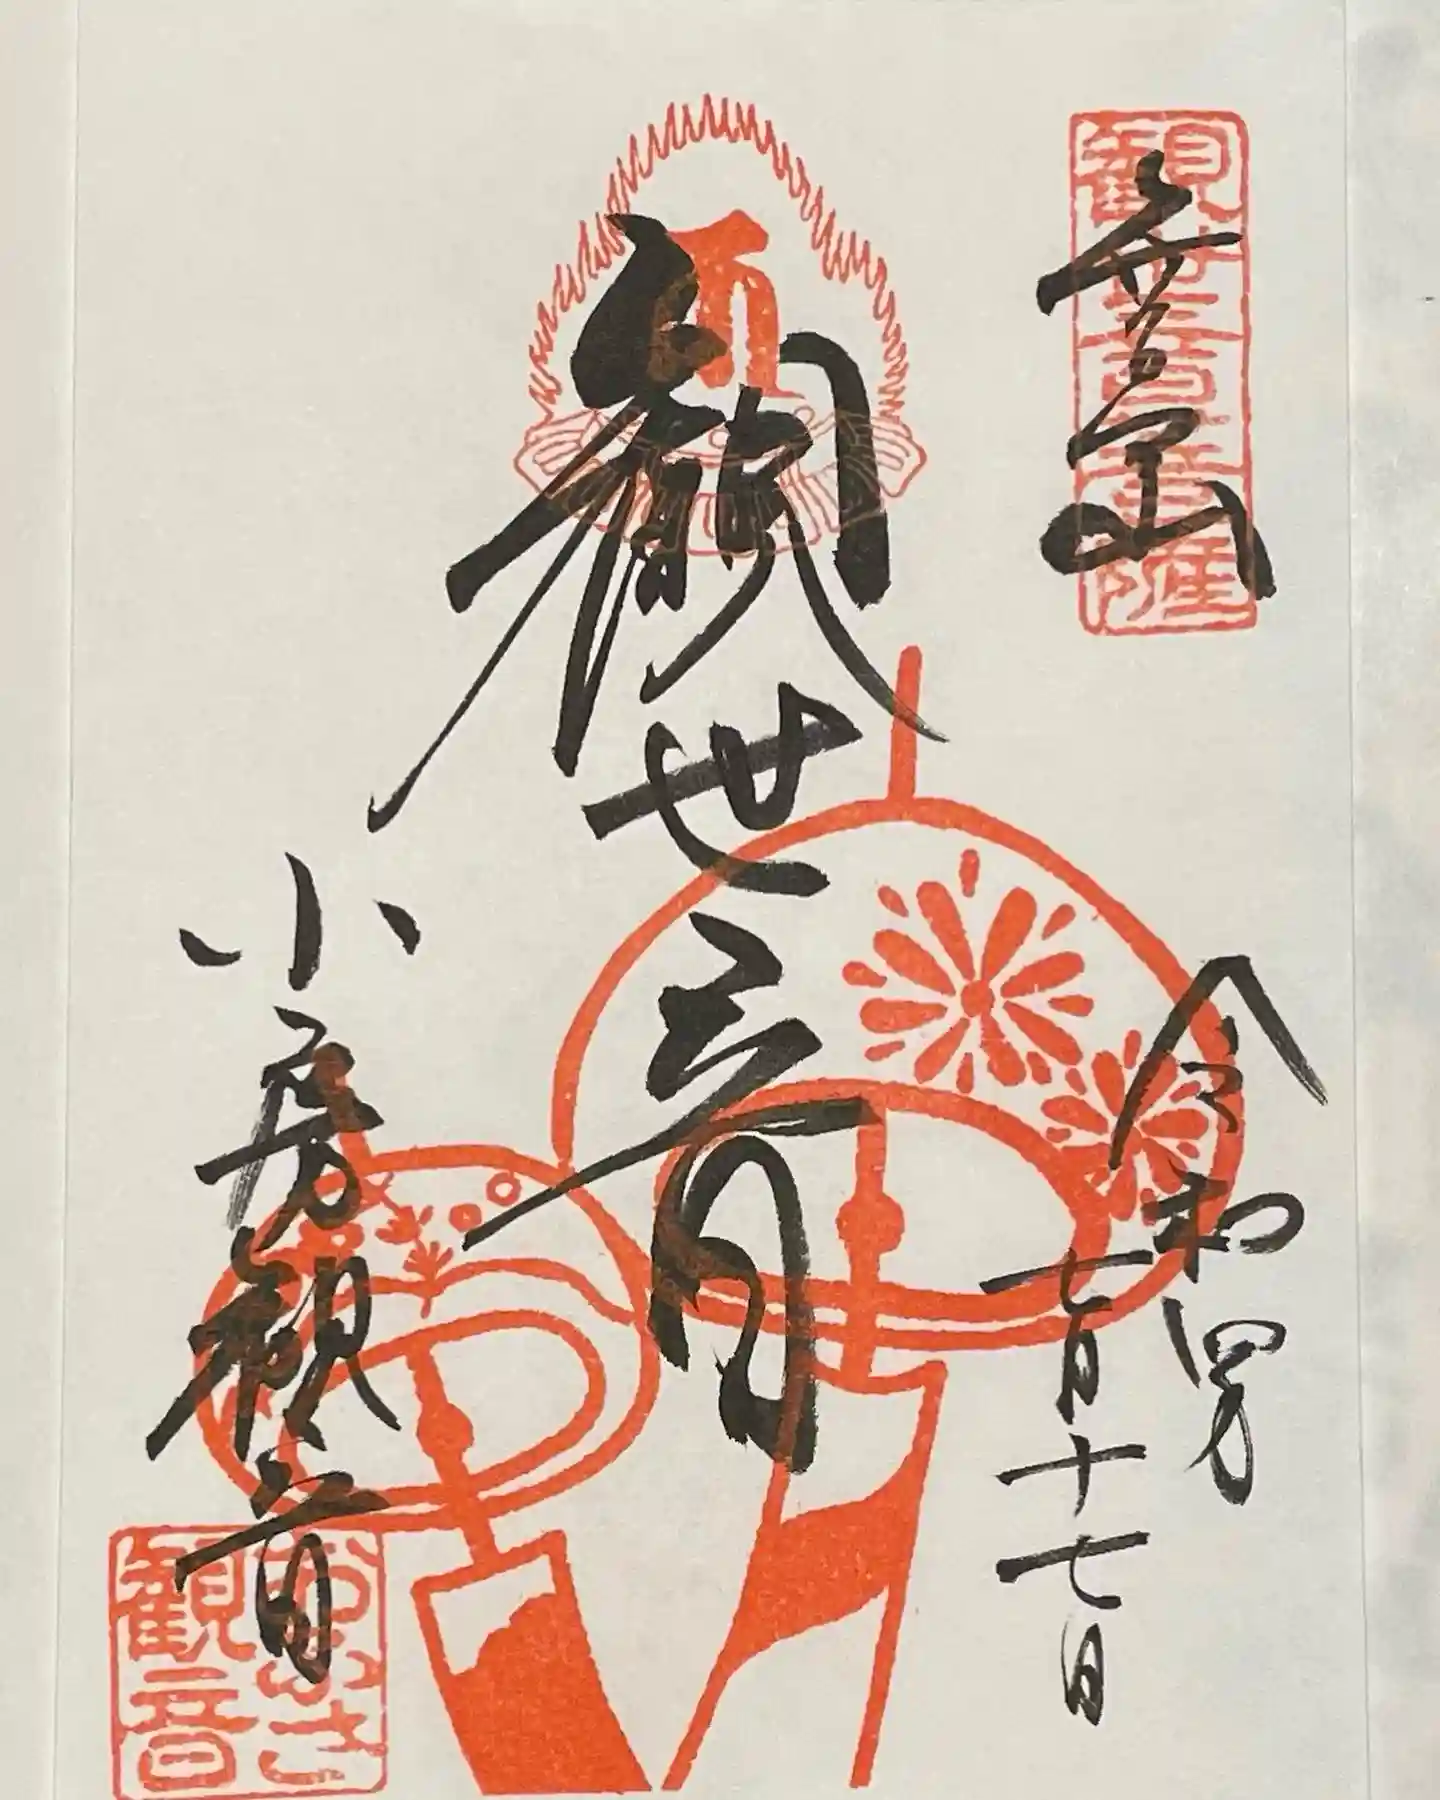 観世音菩薩
令和四年
七月十七日
観世音
小房観音
おふさ
観音